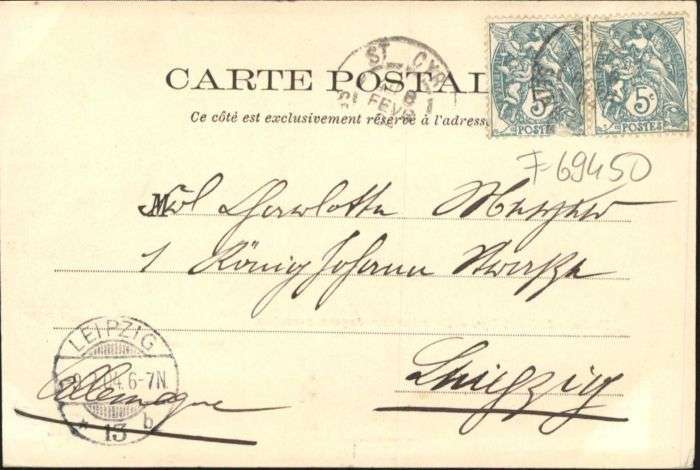 CARTE POSTALE
Ce côté est exclusivement réservé à l'adresse
ST CYR
8
FEVR
5c
POSTES
5c
POSTES
F69450
Charlotte
1 König Johann Strasse
Leipzig
Allemagne
LEIPZIG
.2.04.6-7N
* 13 b